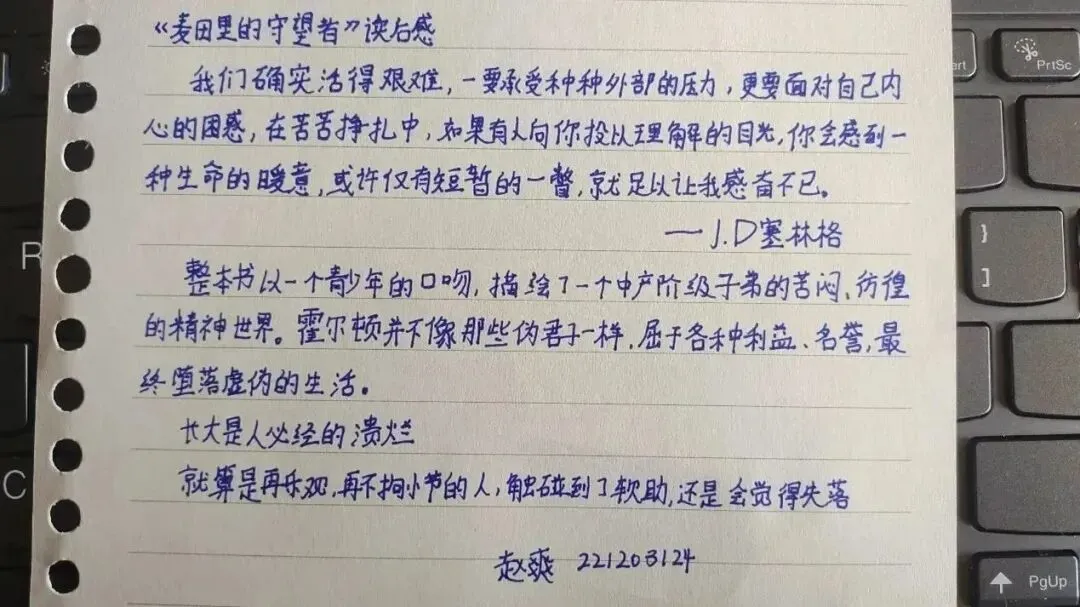 《麦田里的守望者》读后感
我们确实活得艰难，一要承受种种外部的压力，更要面对自己内
心的困惑，在苦苦挣扎中，如果有人向你投以理解的目光，你会感到一
种生命的暖意，或许仅有短暂的一瞥，就足以让我感奋不已。
—J.D塞林格
整本书以一个青少年的口吻，描绘了一个中产阶级子弟的苦闷、彷徨
的精神世界。霍尔顿并不像那些伪君子一样，屈于各种利益、名誉，最
终堕落虚伪的生活。
长大是人必经的溃烂
就算是再乐观，再不拘小节的人，触碰到了软肋，还是会觉得失落
赵爽 221203124
R
C
PrtSc
}
]
PgUp